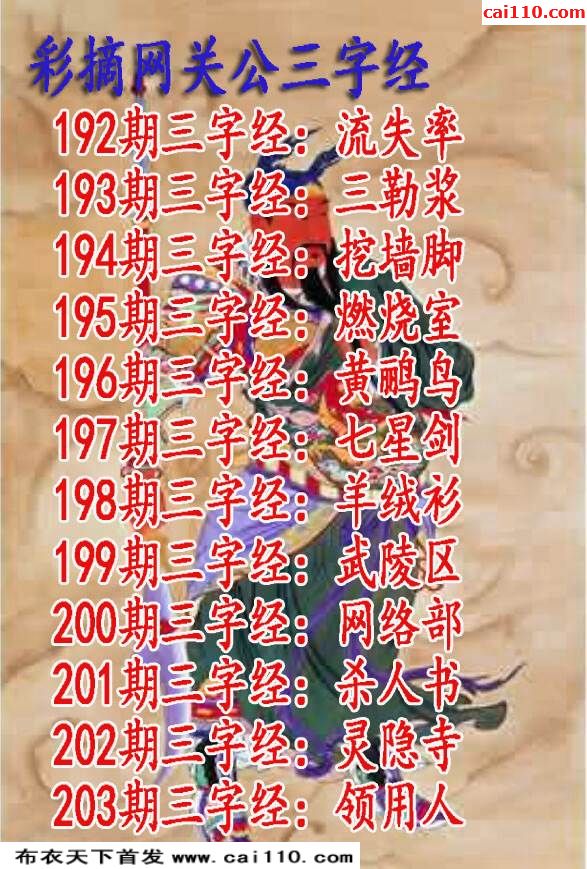 cai110.com
彩摘网关公三字经
192期三字经：流失率
193期三字经：三勒浆
194期三字经：挖墙脚
195期三字经：燃烧室
196期三字经：黄鹂鸟
197期三字经：七星剑
198期三字经：羊绒衫
199期三字经：武陵区
200期三字经：网络部
201期三字经：杀人书
202期三字经：灵隐寺
203期三字经：领用人
布衣天下首发 www.cai110.com